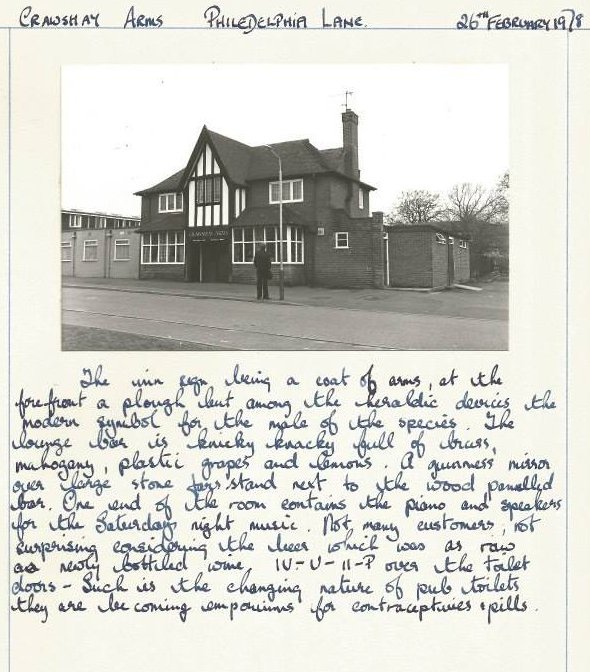 CRAWSHAY ARMS PHILEDELPHIA LANE. 26TH FEBRUARY 1978
CRAWSHAY ARMS
The inn sign being a coat of arms, at the
forefront a plough but among the heraldic devices the
modern symbol for the male of the species. The
lounge bar is knicky knacky full of brass,
mahogany, plastic grapes and lemons. A guinness mirror
over large stone jars stand next to the wood panelled
bar. One end of the room contains the piano and speakers
for the Saturday night music. Not many customers, not
surprising considering the beer which was as raw
as newly bottled wine, IV-U-II-P over the toilet
doors - Such is the changing nature of pub toilets
they are becoming emporiums for contraceptives & pills.